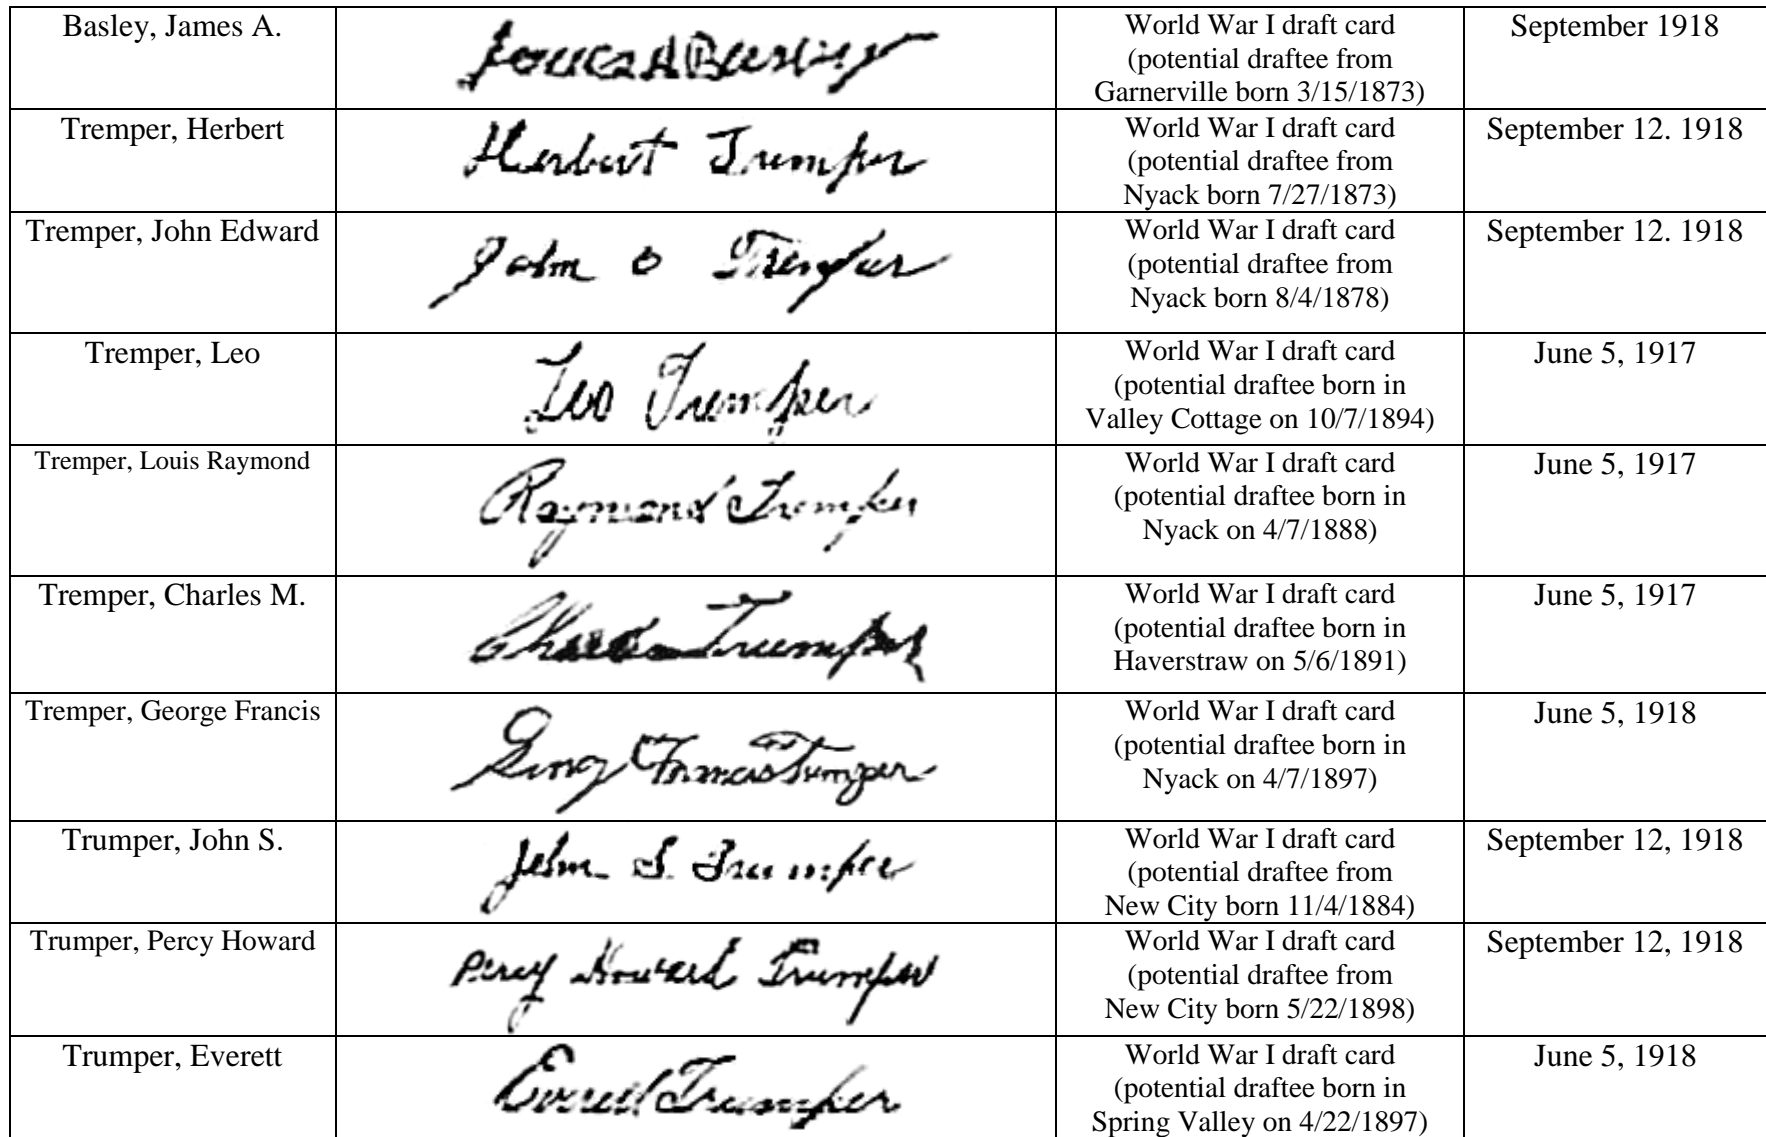 Basley, James A.
James A Basley
World War I draft card
(potential draftee from
Garnerville born 3/15/1873)
September 1918
Tremper, Herbert
Herbert Tremper
World War I draft card
(potential draftee from
Nyack born 7/27/1873)
September 12. 1918
Tremper, John Edward
John e Tremper
World War I draft card
(potential draftee from
Nyack born 8/4/1878)
September 12. 1918
Tremper, Leo
Leo Tremper
World War I draft card
(potential draftee born in
Valley Cottage on 10/7/1894)
June 5, 1917
Tremper, Louis Raymond
Raymond Tremper
World War I draft card
(potential draftee born in
Nyack on 4/7/1888)
June 5, 1917
Tremper, Charles M.
Charles Trumper
World War I draft card
(potential draftee born in
Haverstraw on 5/6/1891)
June 5, 1917
Tremper, George Francis
George Francis Tremper
World War I draft card
(potential draftee born in
Nyack on 4/7/1897)
June 5, 1918
Trumper, John S.
John S. Trumper
World War I draft card
(potential draftee from
New City born 11/4/1884)
September 12, 1918
Trumper, Percy Howard
Percy Howard Trumper
World War I draft card
(potential draftee from
New City born 5/22/1898)
September 12, 1918
Trumper, Everett
Everett Trumper
World War I draft card
(potential draftee born in
Spring Valley on 4/22/1897)
June 5, 1918